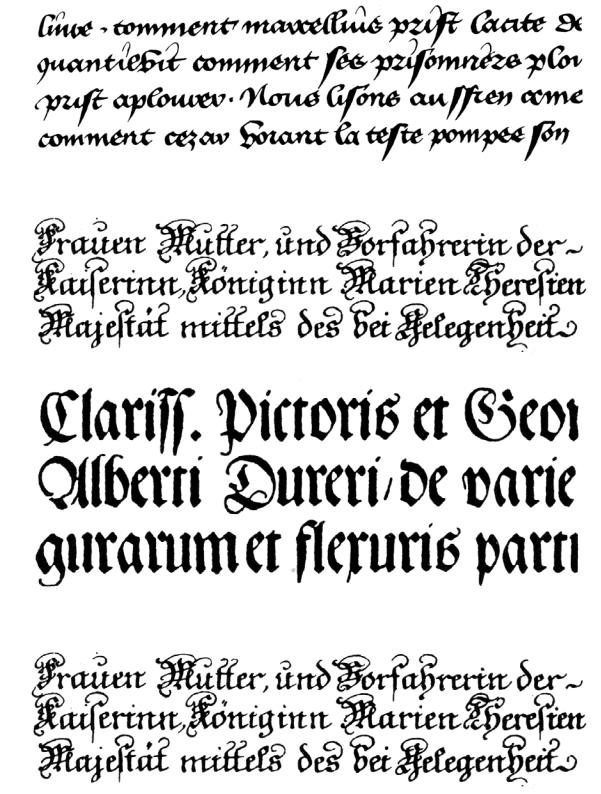 liure · comment marcellius prist lacite de
quantiebit comment ses prisomners plou
prist aplouuer · Nous lisons au ffien come
comment cezar vorant la teste pompee son
Frauen Mutter, und Vorfahrerin der~
Kaiserinn, Königinn Marien Theresien
Majestät mittels des bei Gelegenheit
Clariss. Pictoris et Geor
Alberti Dureri, de varie
gurarum et flexuris parti
Frauen Mutter, und Vorfahrerin der~
Kaiserinn, Königinn Marien Theresien
Majestät mittels des bei Gelegenheit